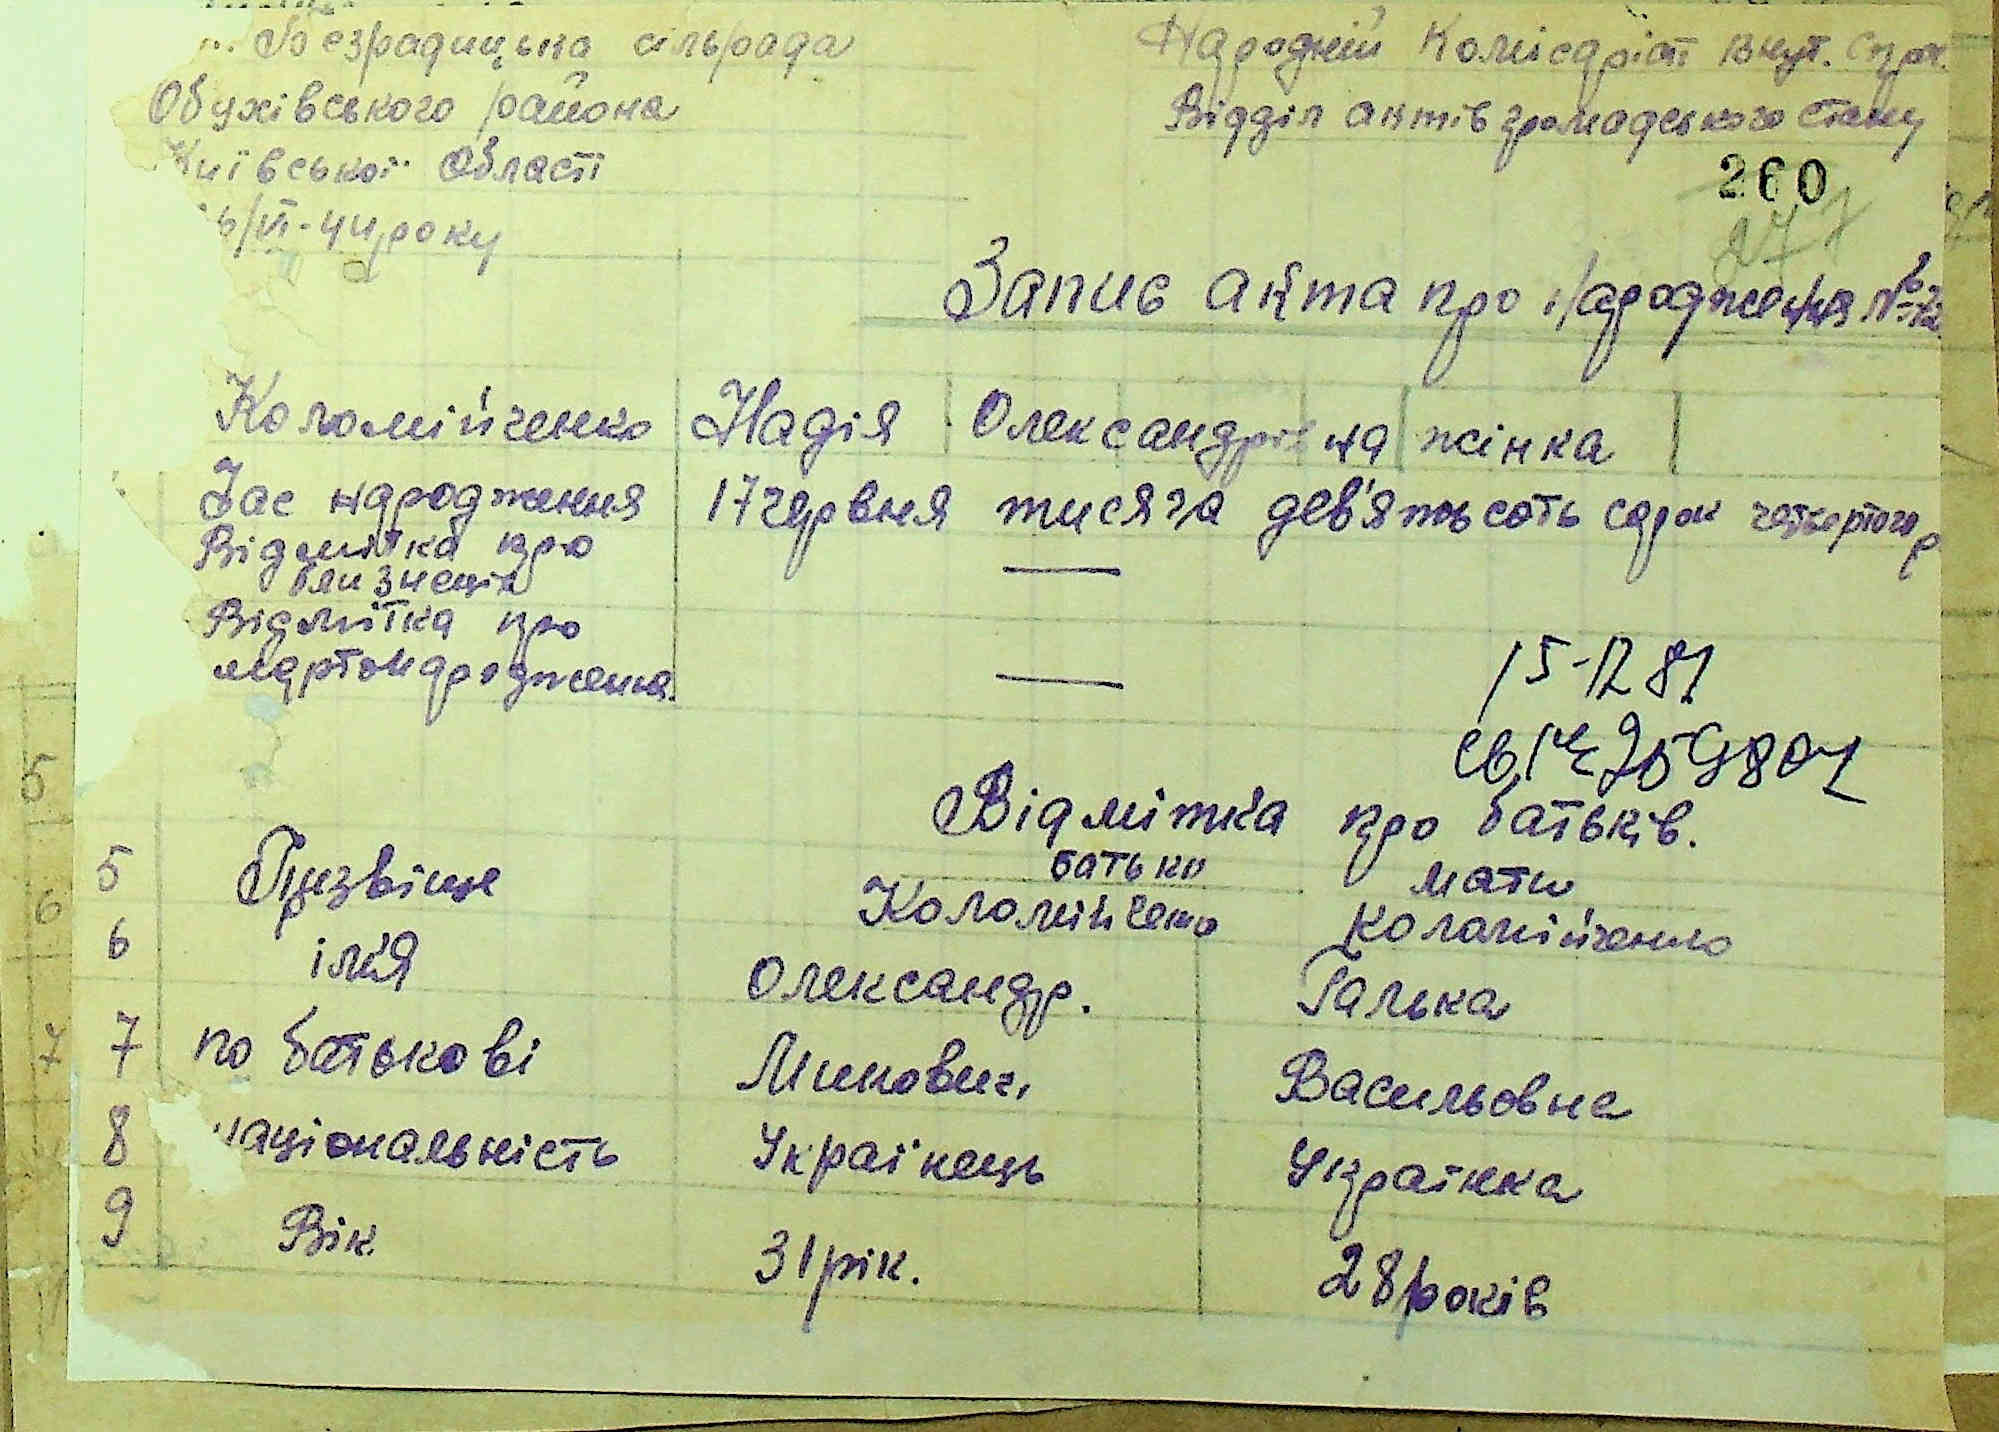 Безрадицька сільрада
Обухівського района
Київської Області
6/VI-44 року
Народній Комісаріят внут. справ.
Відділ актів громадського стану
260
277
Запис акта про народження №
Коломійченко Надія Олександрівна жінка
Час народження 17 червня тисяча дев'ятьсоть сорок четвертого р
Відмітка про близнеців —
Відмітка про мертвонародження. —
15-12 81
Відмітка про батьків.
батько мати
5 Призвіще Коломійченко Коломійченко
6 ім'я Олександр. Галька
7 по батькові Микович, Васильовна
8 національність Українець Українка
9 Вік 31 рік. 28 років
5
6
7